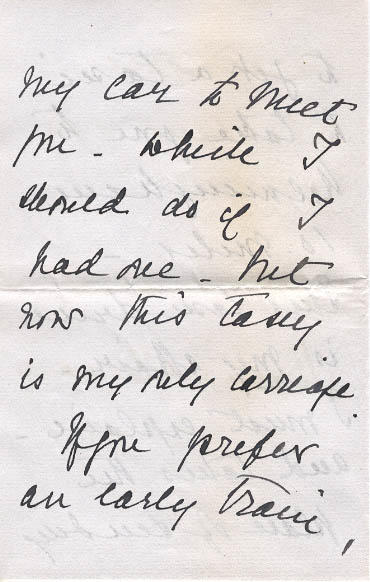 my car to meet
me - which I
should do if I
had one - but
now this Taxey
is my only carriage.
If you prefer
an early train,